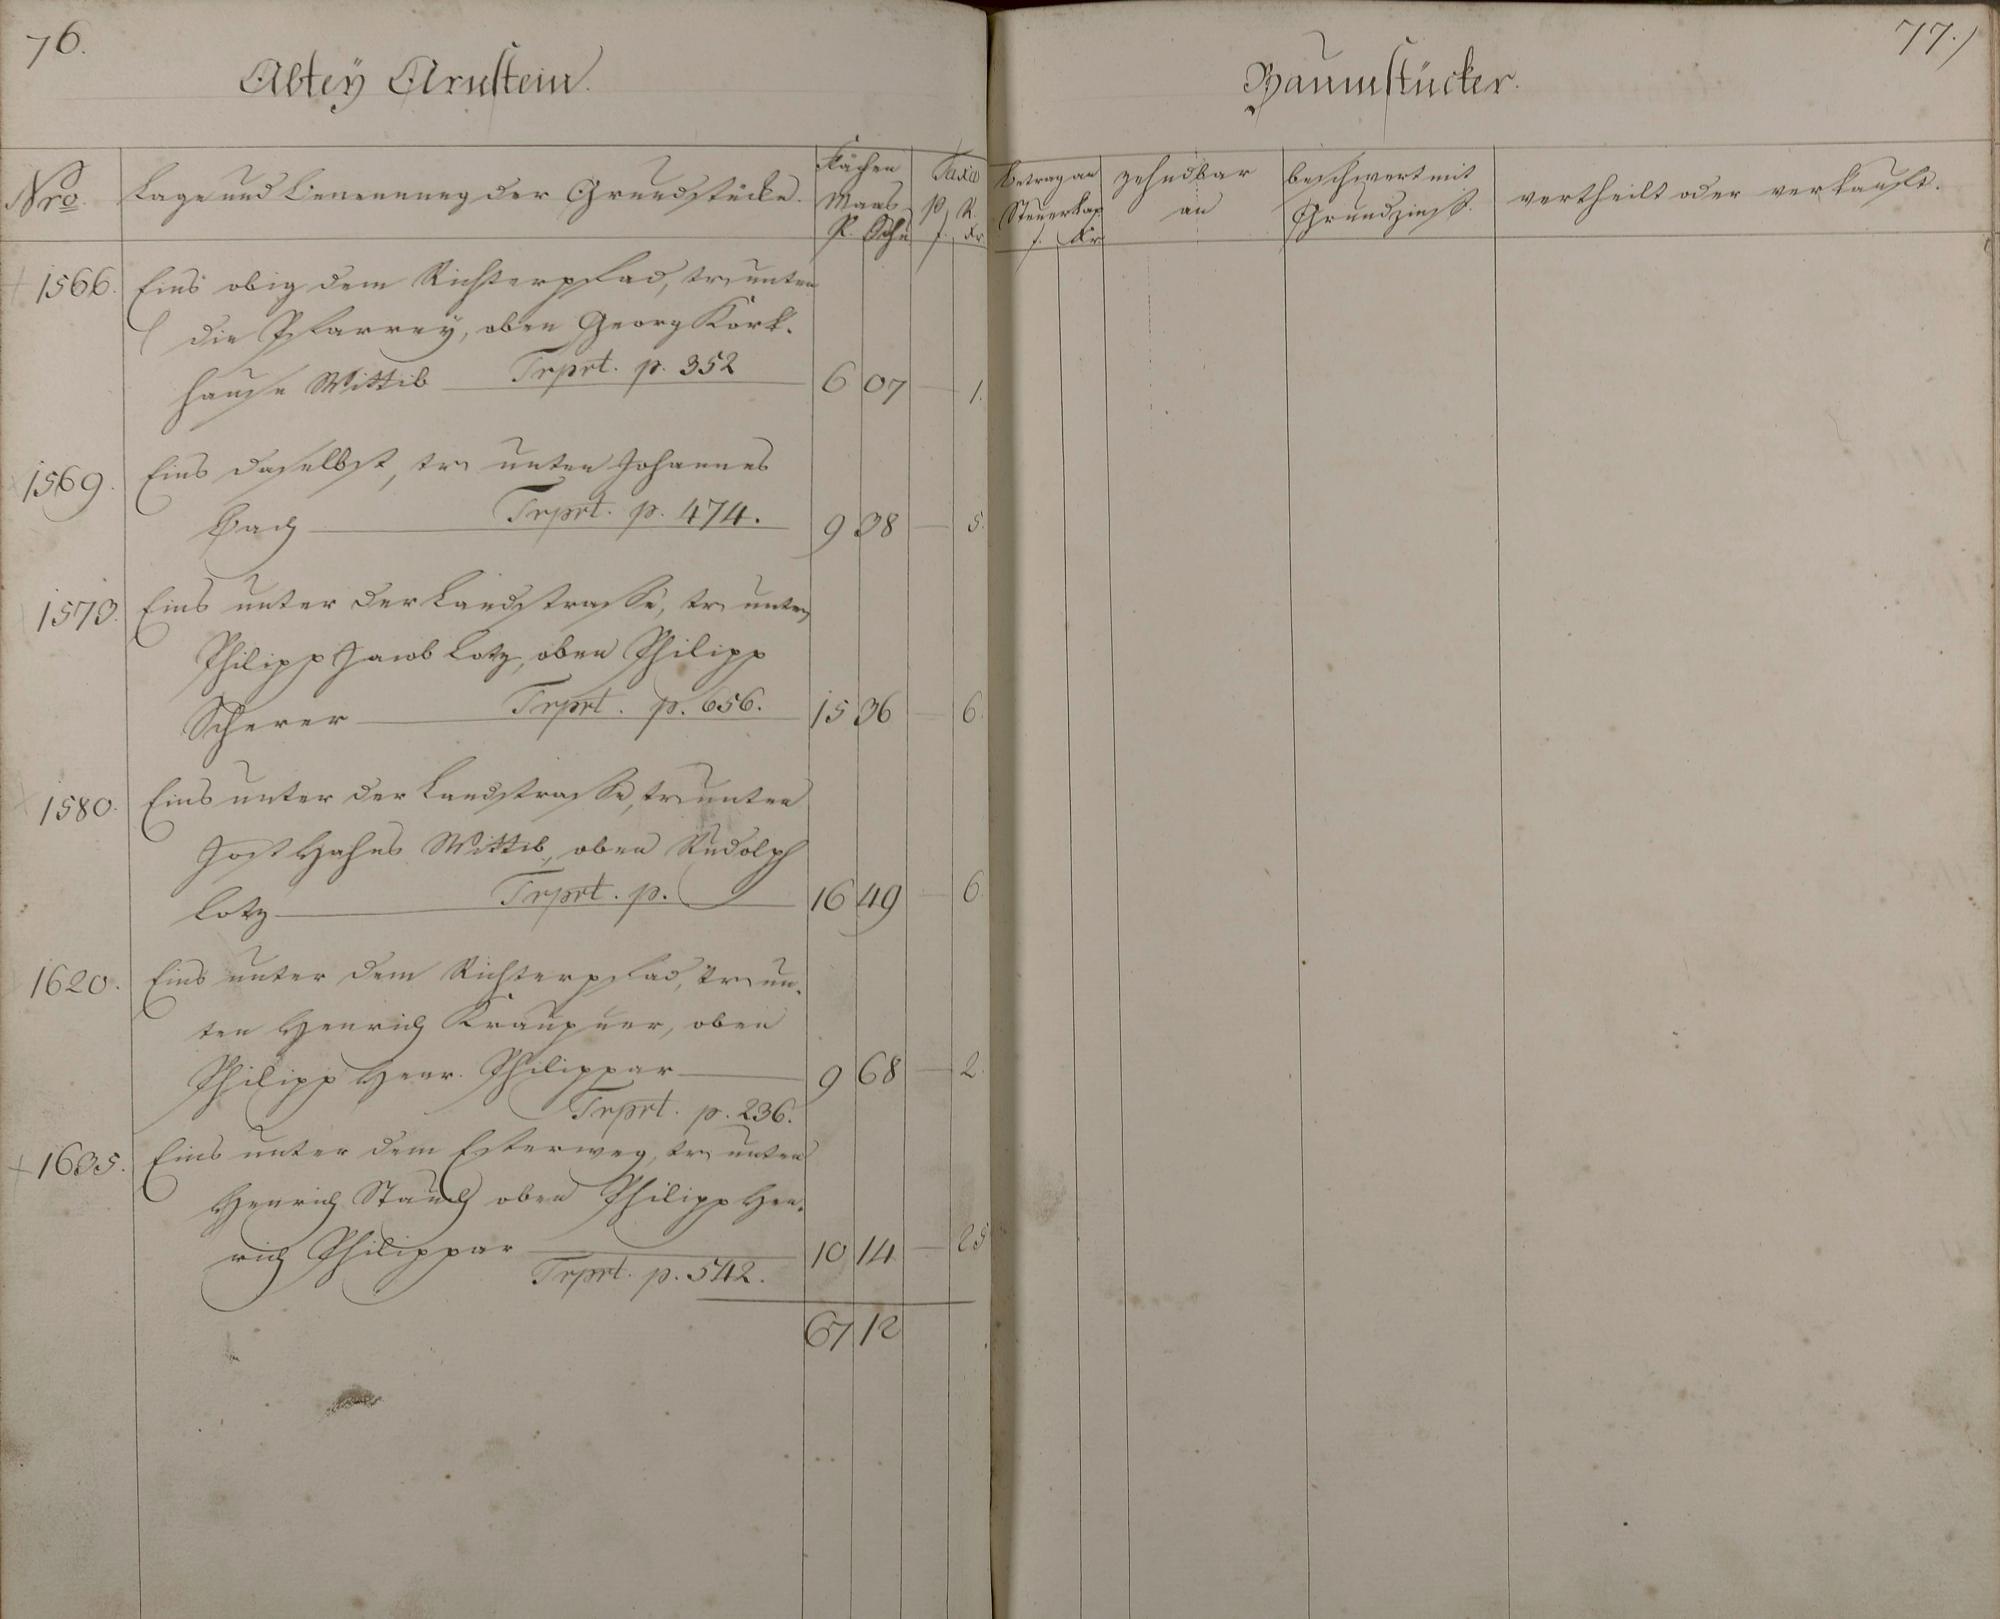 76.
Abtey Arnstein.
Nro.
Lage und Benennung der Grundstücke.
Flächen
Maas
R. Schu
Taxa
p. R.
f. Kr
1566. Eins obig dem Richterpfad, tr. unten
die Pfarrey, oben Georg Kork-
hause Wittib Trprt. p. 352 6 07 — 1.
1569. Eins daselbst, tr. unten Johannes
Bach Trprt. p. 474. 9 38 — 5.
1573. Eins unter der Landstrasse, tr. unten
Philipp Jacob Lotz, oben Philipp
Scherer Trprt. p. 656. 15 36 — 6.
1580. Eins unter der Landstrasse, tr. unten
Jost Hahns Wittib, oben Rudolph
Lotz Trprt. p. 16 49 — 6
1620. Eins unter dem Richterpfad, tr. un-
ten Henrich Kraupner, oben
Philipp Henr. Philippar 9 68 — 2.
Trprt. p. 236.
1635. Eins unter dem Esterweg, tr. unten
Henrich Stauch oben Philipp Hen-
rich Philippar 10 14 — 25
Trprt. p. 542.
67 12
77.
Baumstücker.
Betrag an
Steuerkap
f. Kr
zehndbar
an
beschwert mit
Grundzinß.
vertheilt oder verkauft.